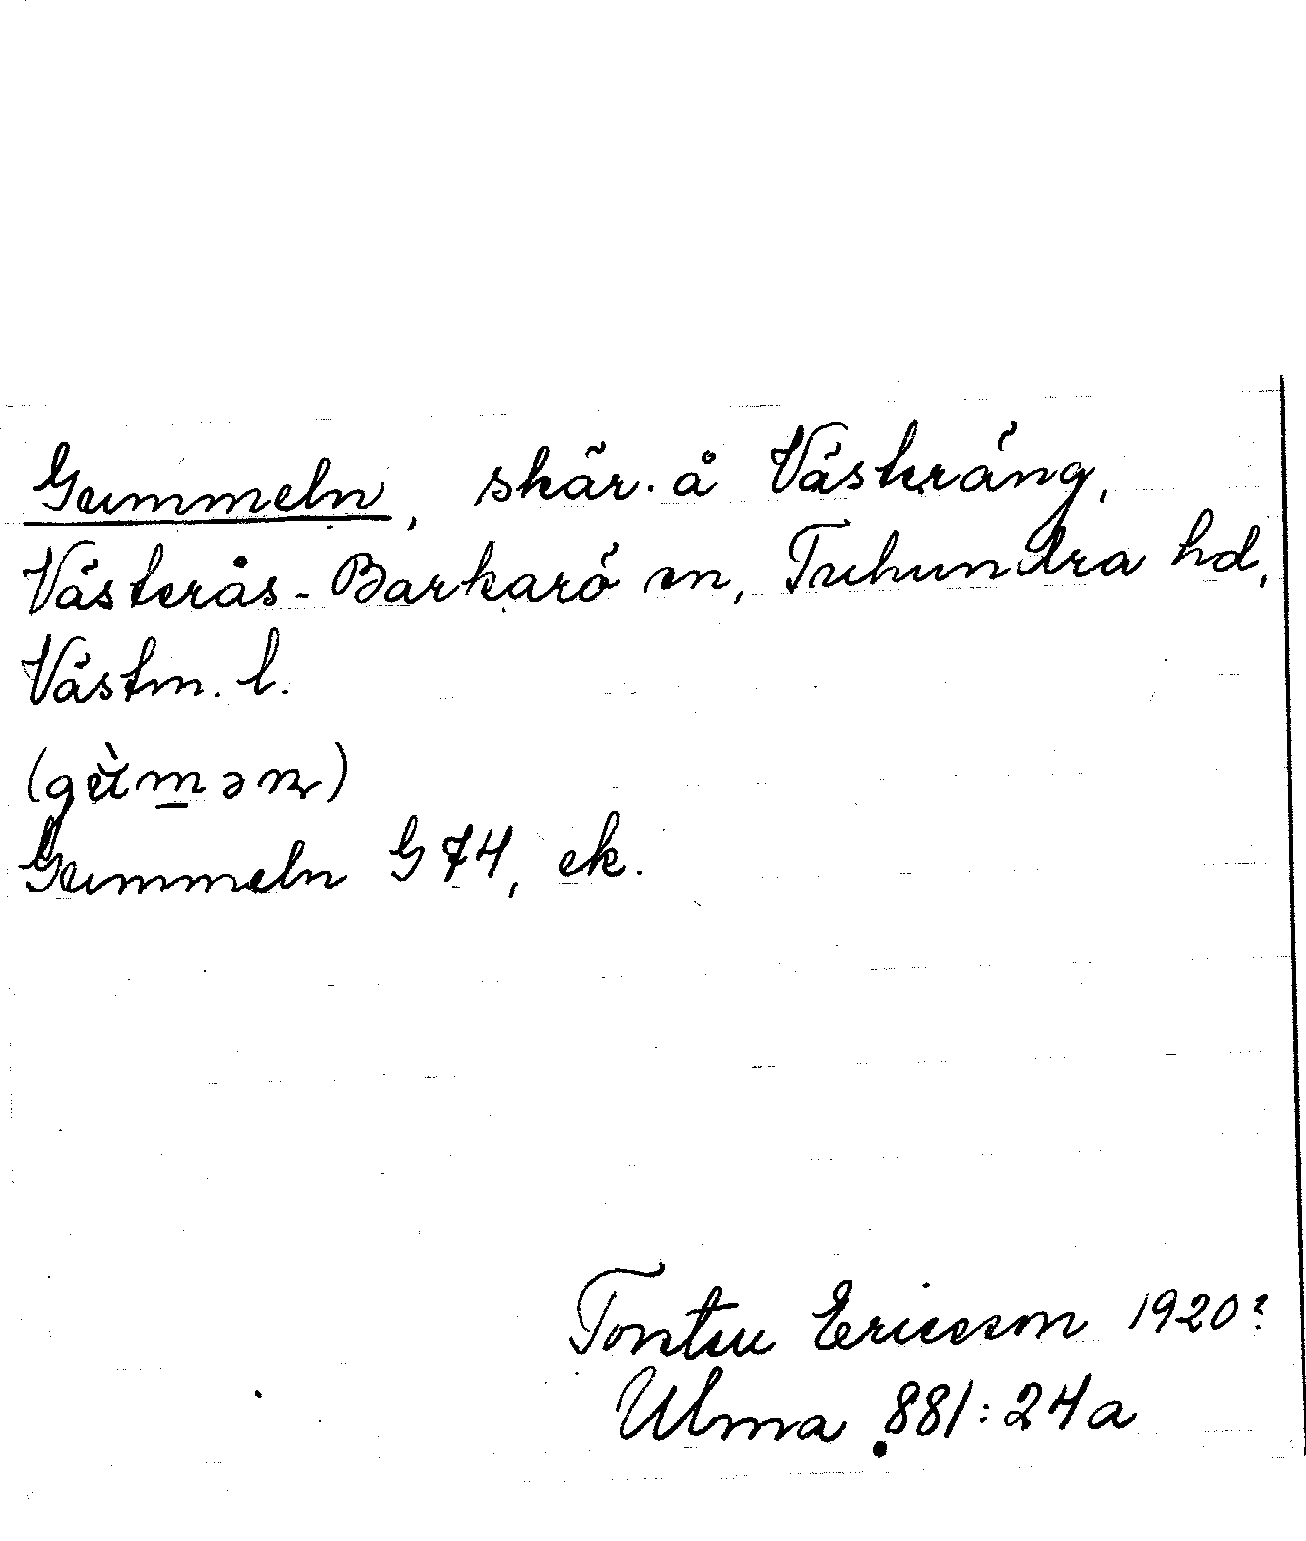 Gummeln, skär. å Västeräng,
Västerås-Barkarö sn, Tuhundra hd,
Västm. l.
Gummeln G 74, ek.
Tontsu Ericsson 1920?
Ulma 881:24a